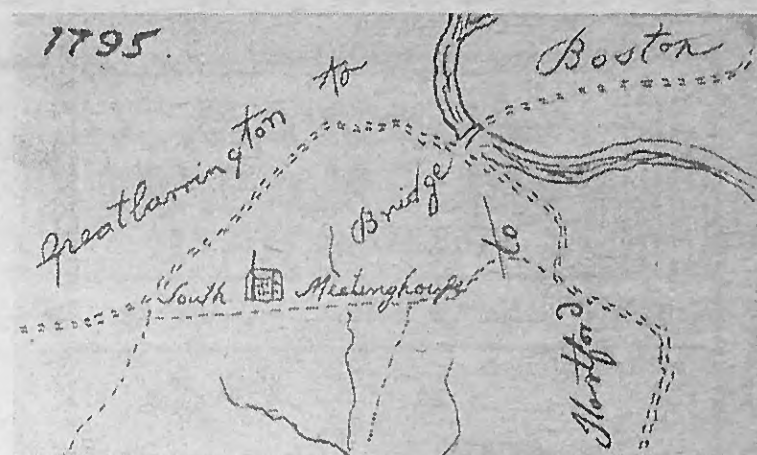 1795.
Greatbarrington to
Boston
Bridge
to
South Meetinghouse
Hartford